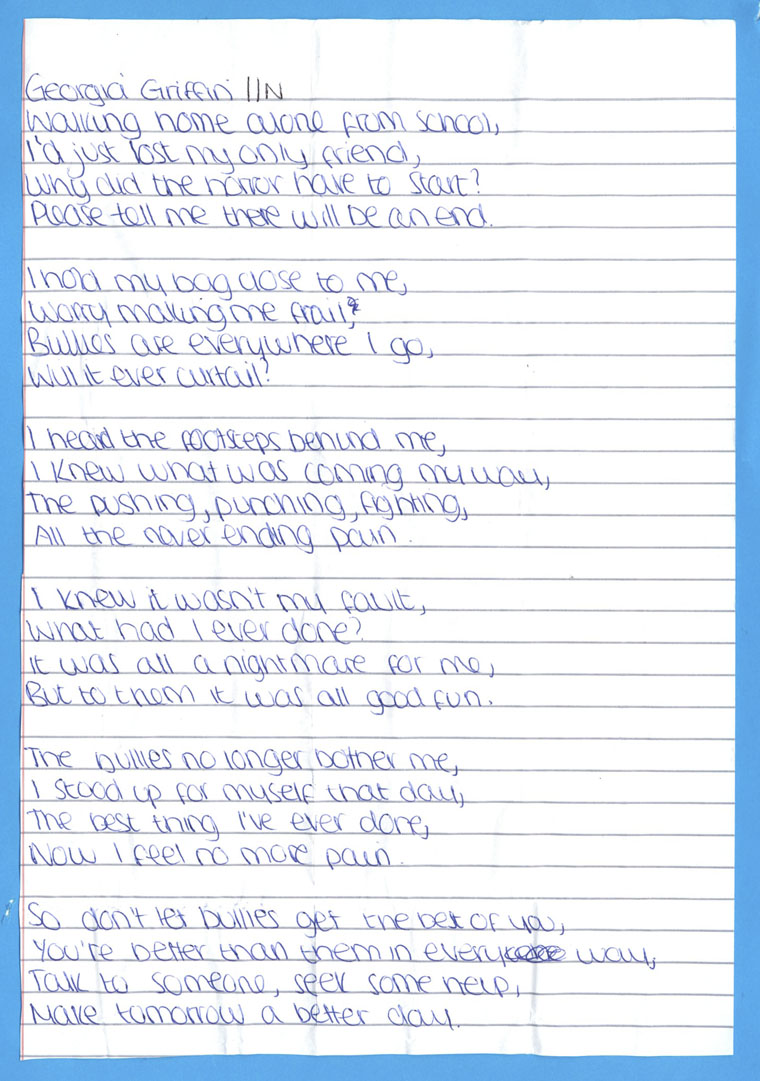 Georgia Griffin 11N
Walking home alone from school,
I'd just lost my only friend,
Why did the horror have to start?
Please tell me there will be an end.
I hold my bag close to me,
Worry making me frail,
Bullies are everywhere I go,
Will it ever curtail?
I heard the footsteps behind me,
I knew what was coming my way,
The pushing, punching, fighting,
All the never ending pain.
I knew it wasn't my fault,
What had I ever done?
It was all a nightmare for me,
But to them it was all good fun.
The bullies no longer bother me,
I stood up for myself that day,
The best thing I've ever done,
Now I feel no more pain.
So don't let bullies get the best of you,
You're better than them in every way,
Talk to someone, seek some help,
Make tomorrow a better day.